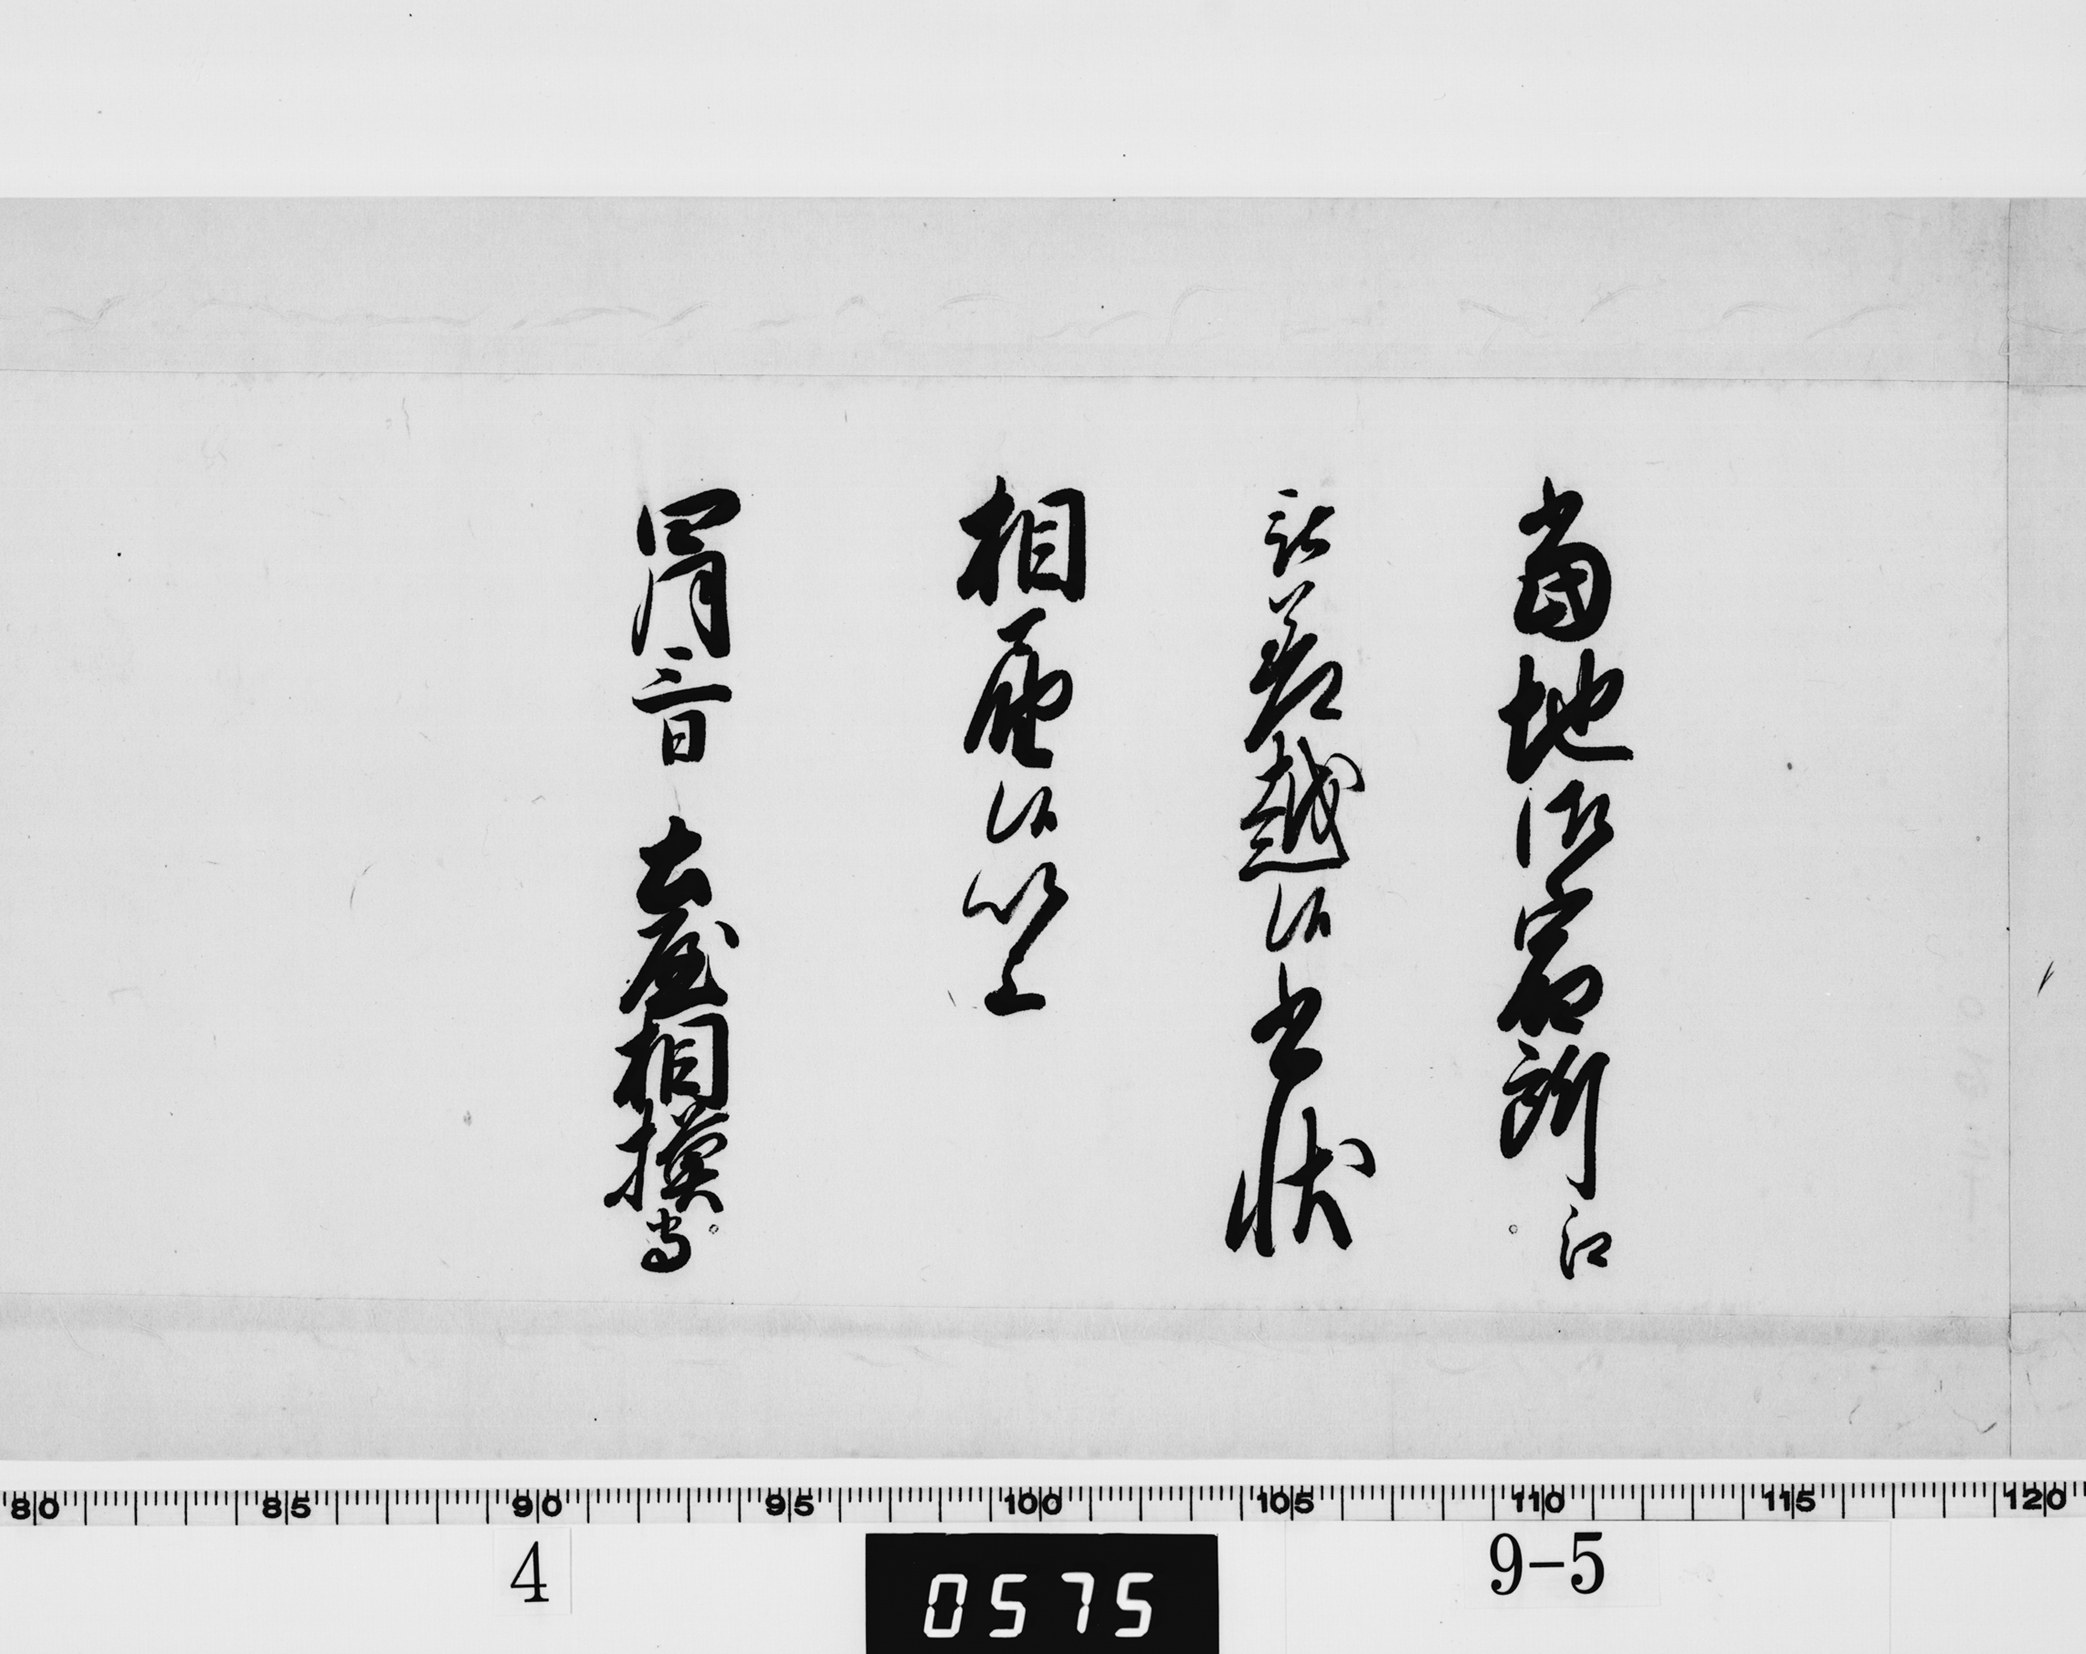 當地御宿所江
被差越候書状
相届候以上
四月三日 土屋相模守
80 85 90 95 100 105 110 115 120
4 0575 9-5